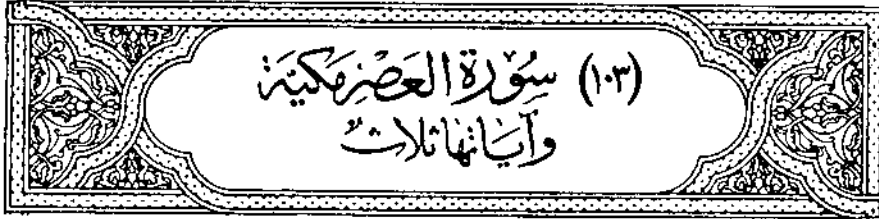 (١٠٣) سُوْرَة العَصْرِ مَكيَّة
وَآيَاتهَا ثَلَاثٌ